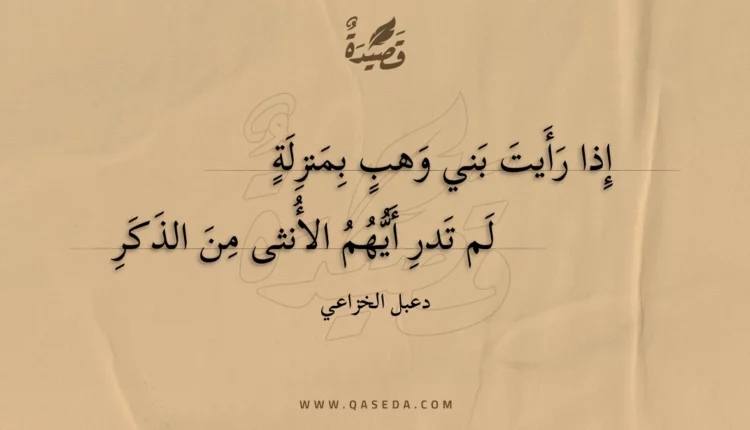 قَصِيدَةٌ
إِذا رَأَيتَ بَني وَهبٍ بِمَنزِلَةٍ
لَم تَدرِ أَيُّهُمُ الأُنثى مِنَ الذَكَرِ
دعبل الخزاعي
WWW.QASEDA.COM